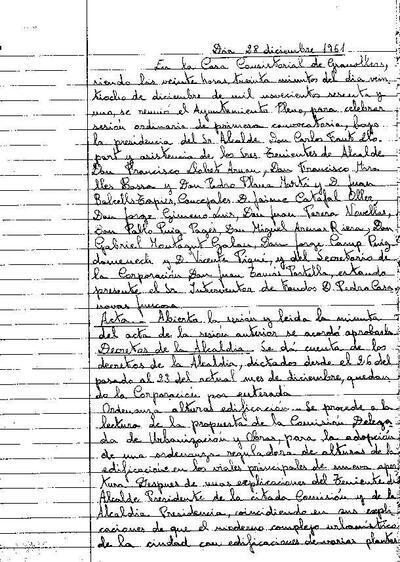 Dia 28 diciembre 1961
En la Casa Consistorial de Granollers,
siendo las veinte horas, treinta minutos del dia vein
tiocho de diciembre de mil novecientos sesenta y
uno, se reunió el Ayuntamiento Pleno, para celebrar
sesión ordinaria de primera convocatoria, bajo
la presidencia del Sr. Alcalde Don Carlos Font Llo
part y asistencia de los Sres. Tenientes de Alcalde
Don Francisco Llobet Arnan, Don Francisco Mora
Barra y Don Pedro Plana Martí y D. Juan
Concejales D. Jaime Catafal Oller
Don Jorge Gimeno Luis, Don Juan Parera Novellas,
Don Pablo Puig Pagés, Don Miguel Arenas Riera, Don
Gabriel Montagut Galan, Don Jorge Camp Puig
domenech y D. Vicente Piqué, y del Secretario de
la Corporación Don Juan Portella, estando
presente el Sr Interventor de fondos D. Pedro Casa
novas
Acta - Abierta la sesión y leida la minuta
del acta de la sesión anterior se acordó aprobarla
Decretos de la Alcaldia - Se dá cuenta de los
decretos de la Alcaldia, dictados desde el 26 del
pasado al 23 del actual mes de diciembre, quedan
do la Corporación por enterada
Ordenanza alturas edificación - Se procede a la
lectura de la propuesta de la Comisión Delega
da de Urbanización y Obras, para la adopción
de una ordenanza reguladora de alturas de la
edificación en los viales principales de nueva aper
tura. Despues de unas explicaciones del Teniente de
Alcalde Presidente de la citada Comisión y de la
Alcaldia Presidencia, coincidiendo en sus expli
caciones de que el moderno complejo urbanistico
de la ciudad con edificaciones de varias plantas